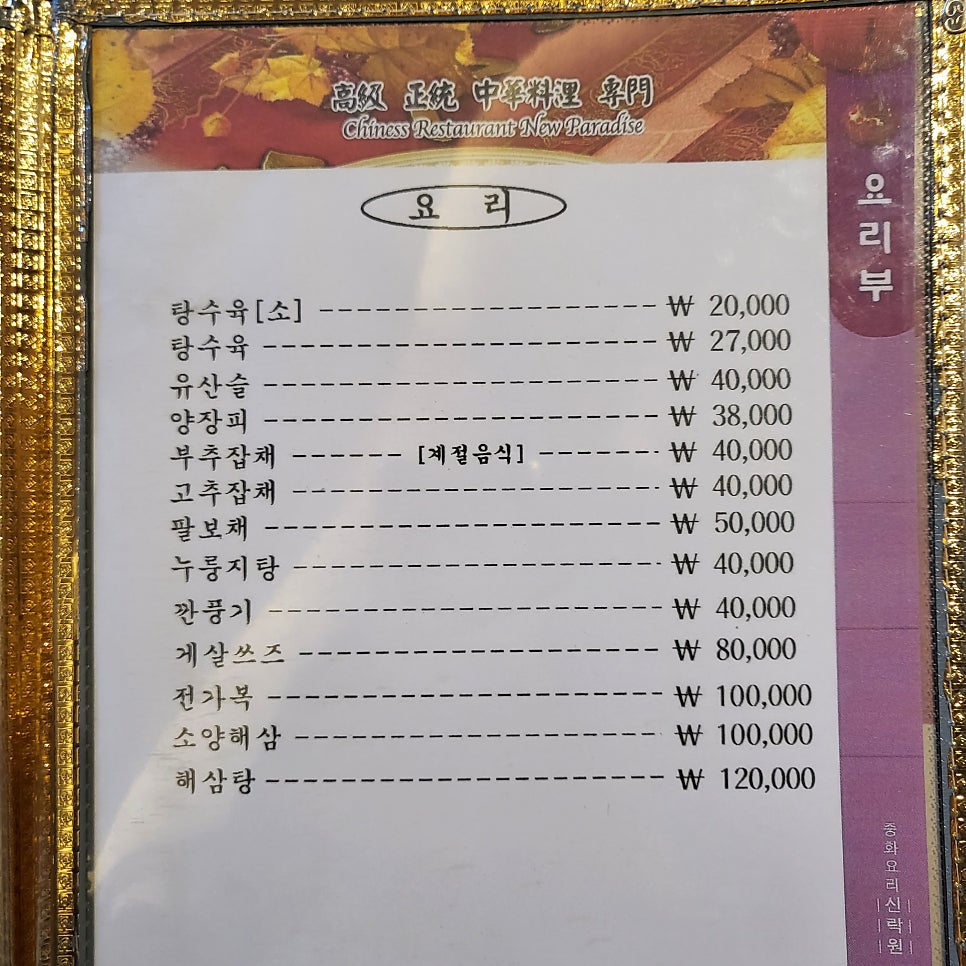 高級 正統 中華料理 専門
Chiness Restaurant New Paradise
요 리
요리부
탕수육[소] ₩ 20,000
탕수육 ₩ 27,000
유산슬 ₩ 40,000
양장피 ₩ 38,000
부추잡채 [계절음식] ₩ 40,000
고추잡채 ₩ 40,000
팔보채 ₩ 50,000
누룽지탕 ₩ 40,000
깐풍기 ₩ 40,000
게살쓰즈 ₩ 80,000
전가복 ₩ 100,000
소양해삼 ₩ 100,000
해삼탕 ₩ 120,000
중화요리신락원